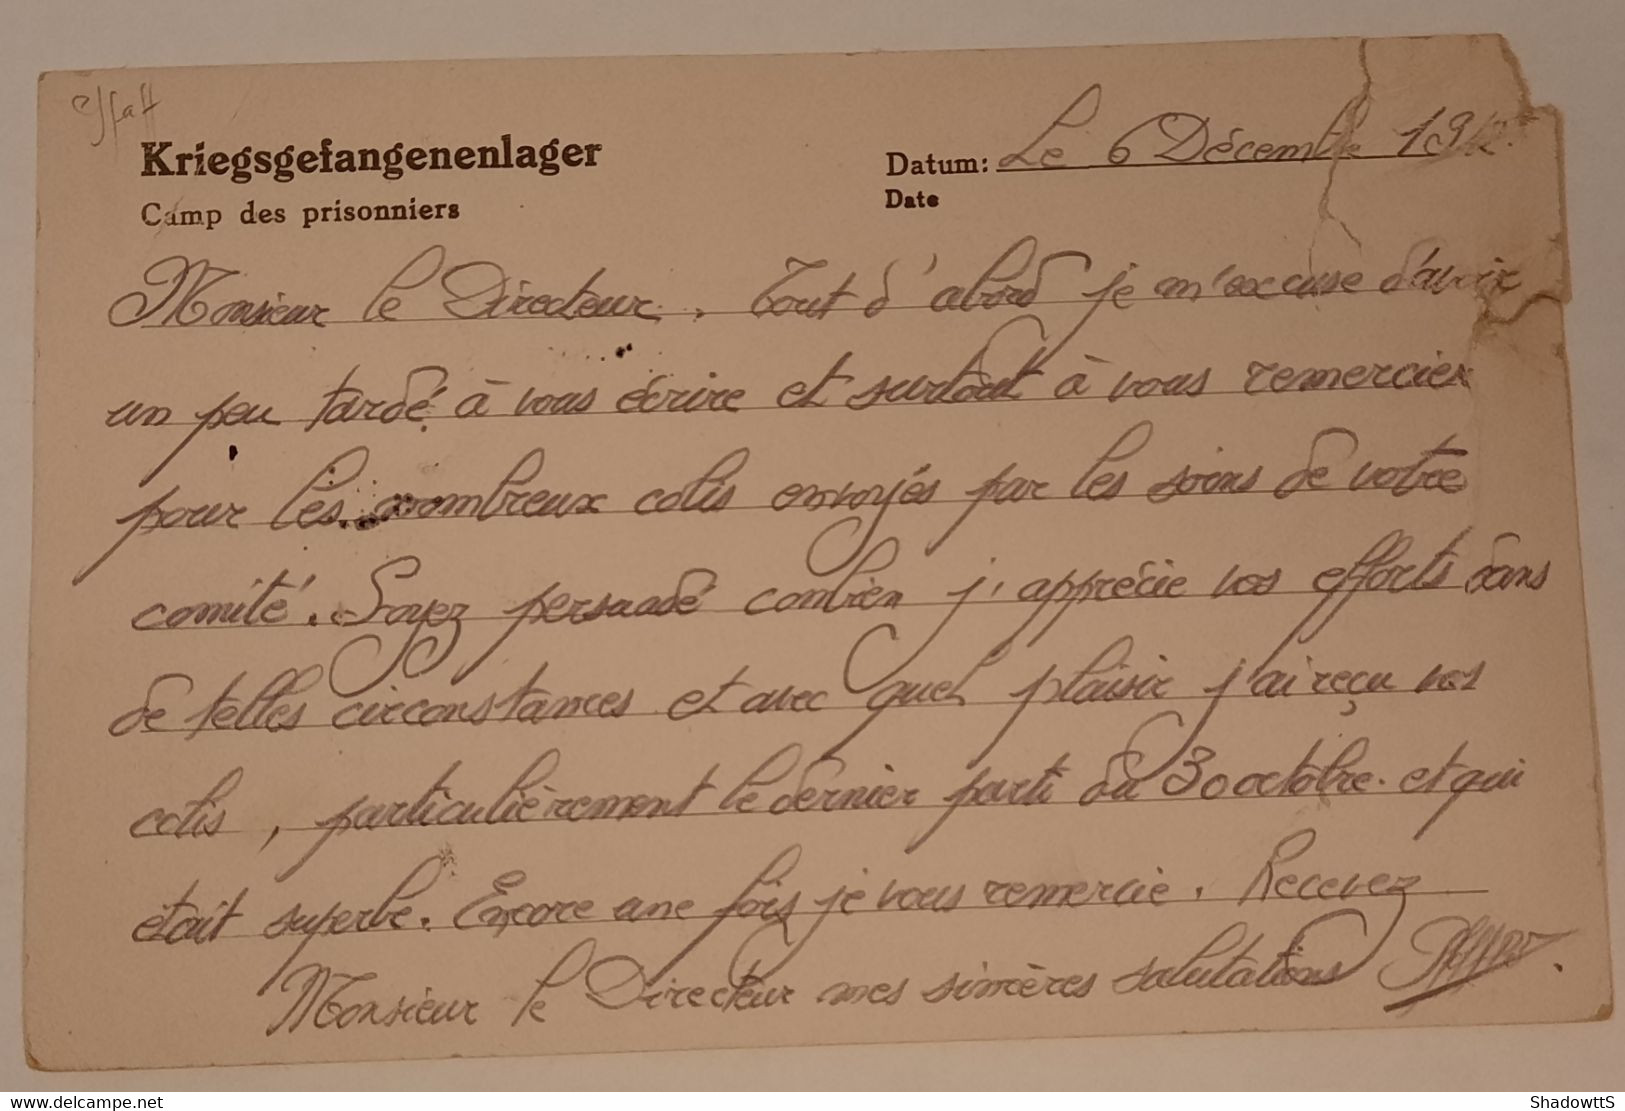 Kriegsgefangenenlager
Camp des prisonniers
Datum: Le 6 Décembre 194
Date
Monsieur le Directeur. Tout d'abord je m'excuse d'avoir
un peu tardé à vous écrire et surtout à vous remercier
pour les nombreux colis envoyés par les soins de votre
comité. Soyez persuadé combien j'apprécie vos efforts dans
de telles circonstances et avec quel plaisir j'ai reçu vos
colis, particulièrement le dernier parti du 30 octobre. et qui
était superbe. Encore une fois je vous remercie. Recevez
Monsieur le Directeur mes sincères salutations
delcampe.net
ShadowttS